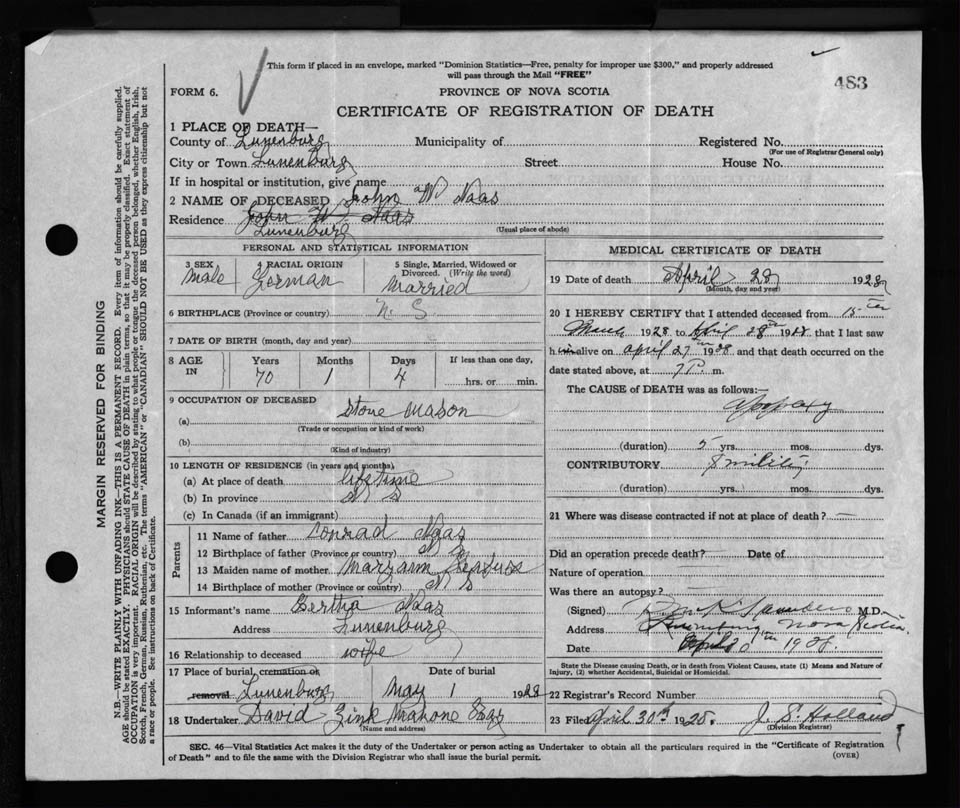 This form if placed in an envelope, marked "Dominion Statistics—Free, penalty for improper use $300," and properly addressed
will pass through the Mail "FREE"
483
FORM 6.
PROVINCE OF NOVA SCOTIA
CERTIFICATE OF REGISTRATION OF DEATH
1 PLACE OF DEATH—
County of Lunenburg Municipality of Registered No.
(For use of Registrar General only)
City or Town Lunenburg Street House No.
If in hospital or institution, give name
2 NAME OF DECEASED John W Naas
Residence John W. Naas
Lunenburg
(Usual place of abode)
PERSONAL AND STATISTICAL INFORMATION
3 SEX
Male
4 RACIAL ORIGIN
German
5 Single, Married, Widowed or
Divorced. (Write the word)
Married
6 BIRTHPLACE (Province or country) N. S.
7 DATE OF BIRTH (month, day and year)
8 AGE IN
Years Months Days If less than one day,
70 1 4 hrs. or min.
9 OCCUPATION OF DECEASED
(a) Stone Mason
(Trade or occupation or kind of work)
(b)
(Kind of industry)
10 LENGTH OF RESIDENCE (in years and months)
(a) At place of death lifetime
(b) In province N S
(c) In Canada (if an immigrant)
Parents
11 Name of father Conrad Naas
12 Birthplace of father (Province or country) N S
13 Maiden name of mother Maryann
14 Birthplace of mother (Province or country) N S
15 Informant's name Bertha Naas
Address Lunenburg
16 Relationship to deceased wife
17 Place of burial, cremation or
removal Lunenburg
Date of burial
May 1 1928
18 Undertaker David Zink Mahone Bay
(Name and address)
MEDICAL CERTIFICATE OF DEATH
19 Date of death April 28 1928
(Month, day and year)
20 I HEREBY CERTIFY that I attended deceased from 15
March 1928 to April 28th 1928 that I last saw
him alive on april 27th 1928 and that death occurred on the
date stated above, at 7 P. m.
The CAUSE of DEATH was as follows:—
(duration) 5 yrs. mos. dys.
CONTRIBUTORY
(duration) yrs. mos. dys.
21 Where was disease contracted if not at place of death?
Did an operation precede death? Date of
Nature of operation
Was there an autopsy?
(Signed) M.D.
Address Lunenburg Nova Scotia
Date April 1928.
State the Disease causing Death, or in death from Violent Causes, state (1) Means and Nature of
Injury, (2) whether Accidental, Suicidal or Homicidal.
22 Registrar's Record Number
23 Filed April 30th 1928. J. E. Holland
(Division Registrar)
SEC. 46—Vital Statistics Act makes it the duty of the Undertaker or person acting as Undertaker to obtain all the particulars required in the "Certificate of Registration
of Death" and to file the same with the Division Registrar who shall issue the burial permit.
(OVER)
MARGIN RESERVED FOR BINDING
N.B.—WRITE PLAINLY WITH UNFADING INK—THIS IS A PERMANENT RECORD. Every item of information should be carefully supplied.
AGE should be stated EXACTLY. PHYSICIANS should STATE CAUSE OF DEATH in plain terms, so that it may be properly classified. Exact statement of
OCCUPATION is very important. RACIAL ORIGIN will be described by stating to what people or tongue the deceased person belonged, whether English, Irish,
Scotch, French, German, Russian, Ruthenian, etc. The terms "AMERICAN" or "CANADIAN" SHOULD NOT BE USED as they express citizenship but not
a race or people. See instructions on back of Certificate.